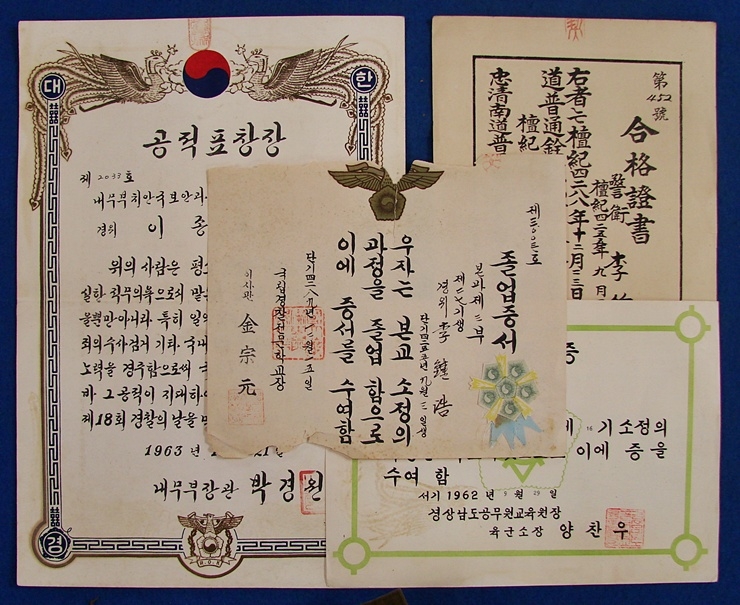 대 한
공적표창장
제 2033 호
내무부치안국보안과
경위 이 종
위의 사람은 평소
실한 직무의욕으로서 맡은
을뿐만아니라 특히 일의
죄의수사검거 기타 국내
노력을 경주함으로써
바 그공적이 지대하
제18회 경찰의 날을
1963 년 21일
내무부장관 박경원
경
R.O.K
第 452 號
合格證書
警衛 李
檀紀四二五五年 九月
右者는 檀紀四二八八年十二月三日
道普通銓
檀紀
忠淸南道普
졸업증서
본과제三부
경위 李 鍾 浩
단기四二五五년九월三일생
우자는 본교 소정의
과정을 졸업함으로
이에 증서를 수여함
국립경찰전문학교장
이사관 金 宗 元
증
제 16 기소정의
이에 증을
수여 함
서기 1962 년 9 월 29 일
경상남도공무원교육원장
육군소장 양 찬 우